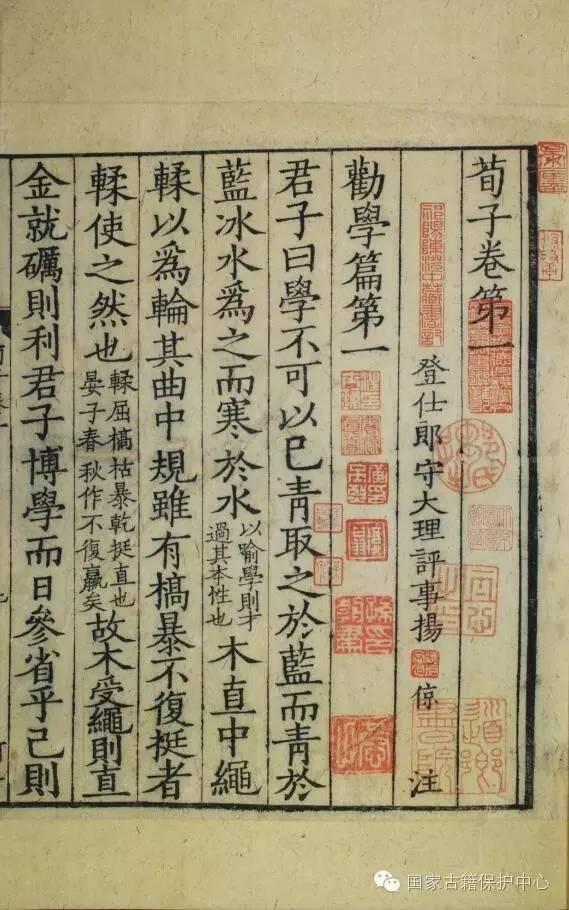 荀子卷第一
登仕郎守大理評事揚倞注
勸學篇第一
君子曰學不可以已青取之於藍而青於
藍冰水爲之而寒於水以喻學則才過其本性也木直中繩
輮以爲輪其曲中規雖有槁暴不復挺者
輮使之然也輮屈槁枯暴乾挺直也晏子春秋作不復贏矣故木受繩則直
金就礪則利君子博學而日參省乎己則
祁陽陳澄中藏書記
国家古籍保护中心